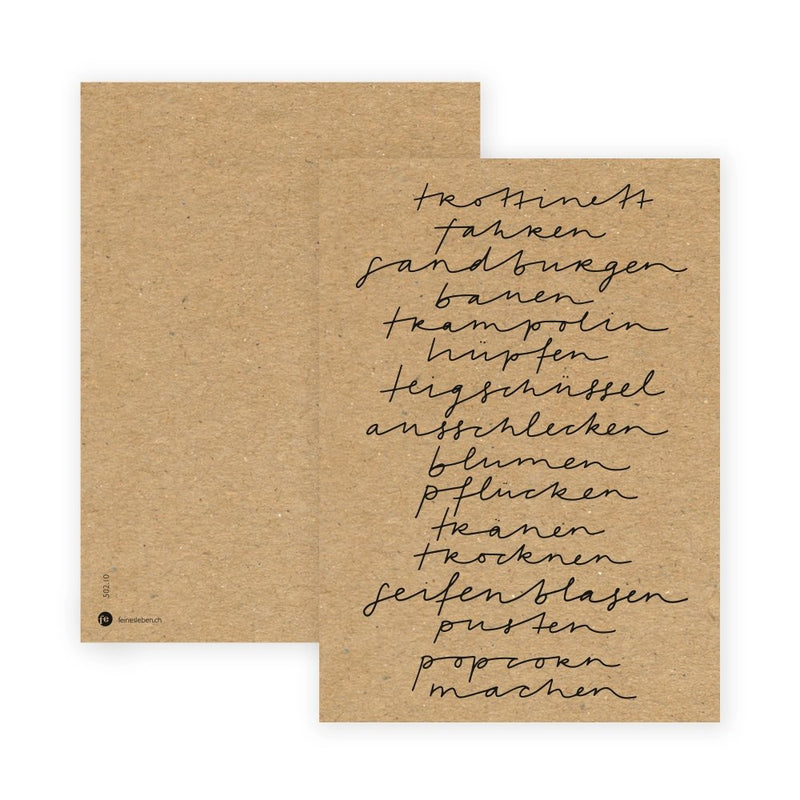 trottinett
fahren
sandburgen
bauen
trampolin
hüpfen
teigschüssel
ausschlecken
blumen
pflücken
tränen
trocknen
seifenblasen
pusten
popcorn
machen
502.10
fe feinesleben.ch